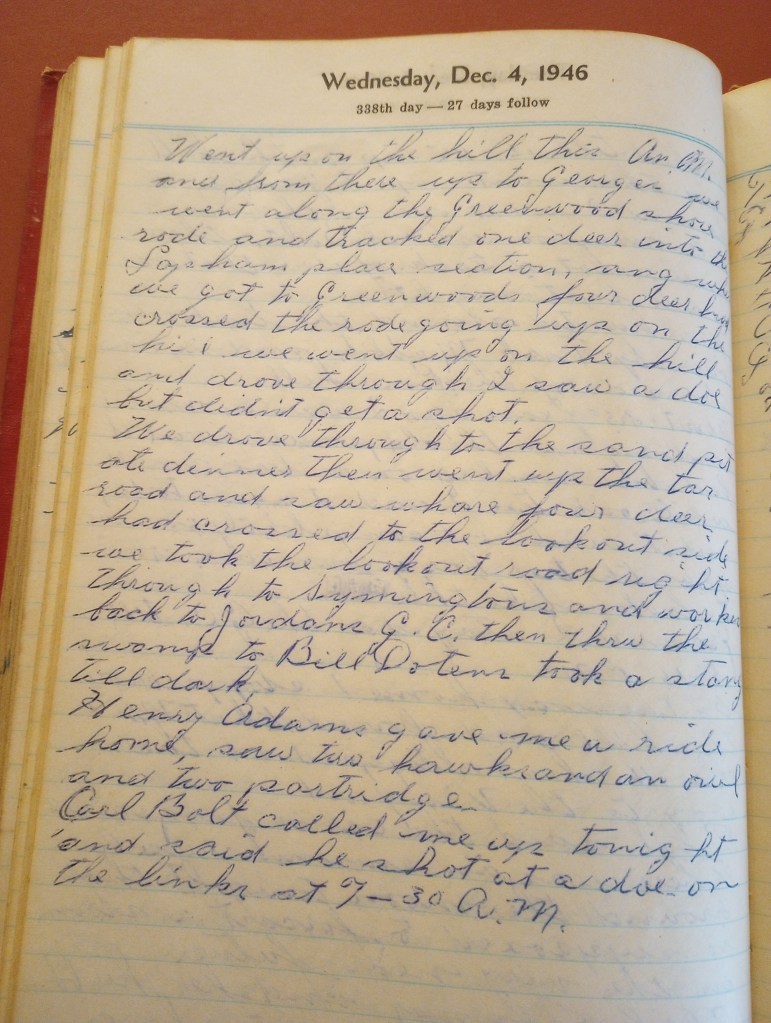 Wednesday, Dec. 4, 1946
338th day — 27 days follow
Went up on the hill this A.M.
and from there up to Georges we
went along the Greenwood shore
rode and tracked one deer into the
Lapham place section,
we got to Greenwoods four deer had
crossed the rode going up on the
hi we went up on the hill
and drove through I saw a doe
but didn't get a shot.
We drove through to the sand pit
ate dinner then went up the tar
road and saw whare four deer
had crossed to the lookout side
we took the lookout road right
through to Symingtons and worked
back to Jordans G. C. then thru the
swamp to Bill Dotens took a stand
till dark,
Henry Adams gave me a ride
home, saw two hawks and an owl
and two partridge.
Carl Bolt called me up tonight
and said he shot at a doe on
the links at 7-30 A.M.